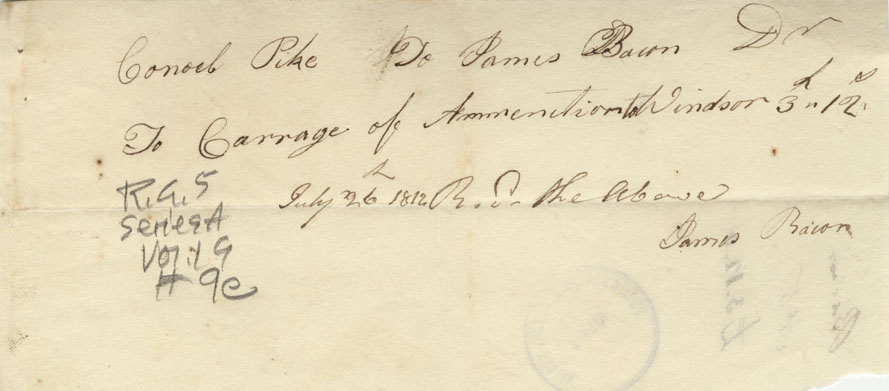 Conoeb Pike To James Bacon Dr
To Carrage of Ammenition to Windsor 3d " 12c
July 26th 1812 Rcd the Above
James Bacon
R.G. 5
Series A
Vol. 1 G
# 9c